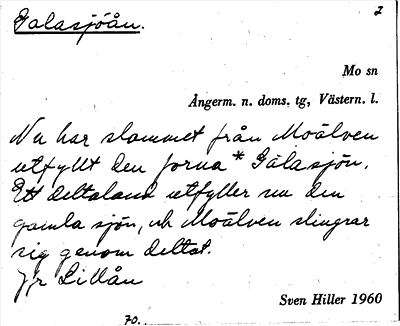 Gålasjöån. 2
Mo sn
Ångerm. n. doms. tg, Västern. l.
Nu har slammet från Moälven
utfyllt den forna * Gålasjön.
Ett deltaland utfyller nu den
gamla sjön, och Moälven slingrar
sig genom deltat.
Jfr Lillån
Sven Hiller 1960
70.